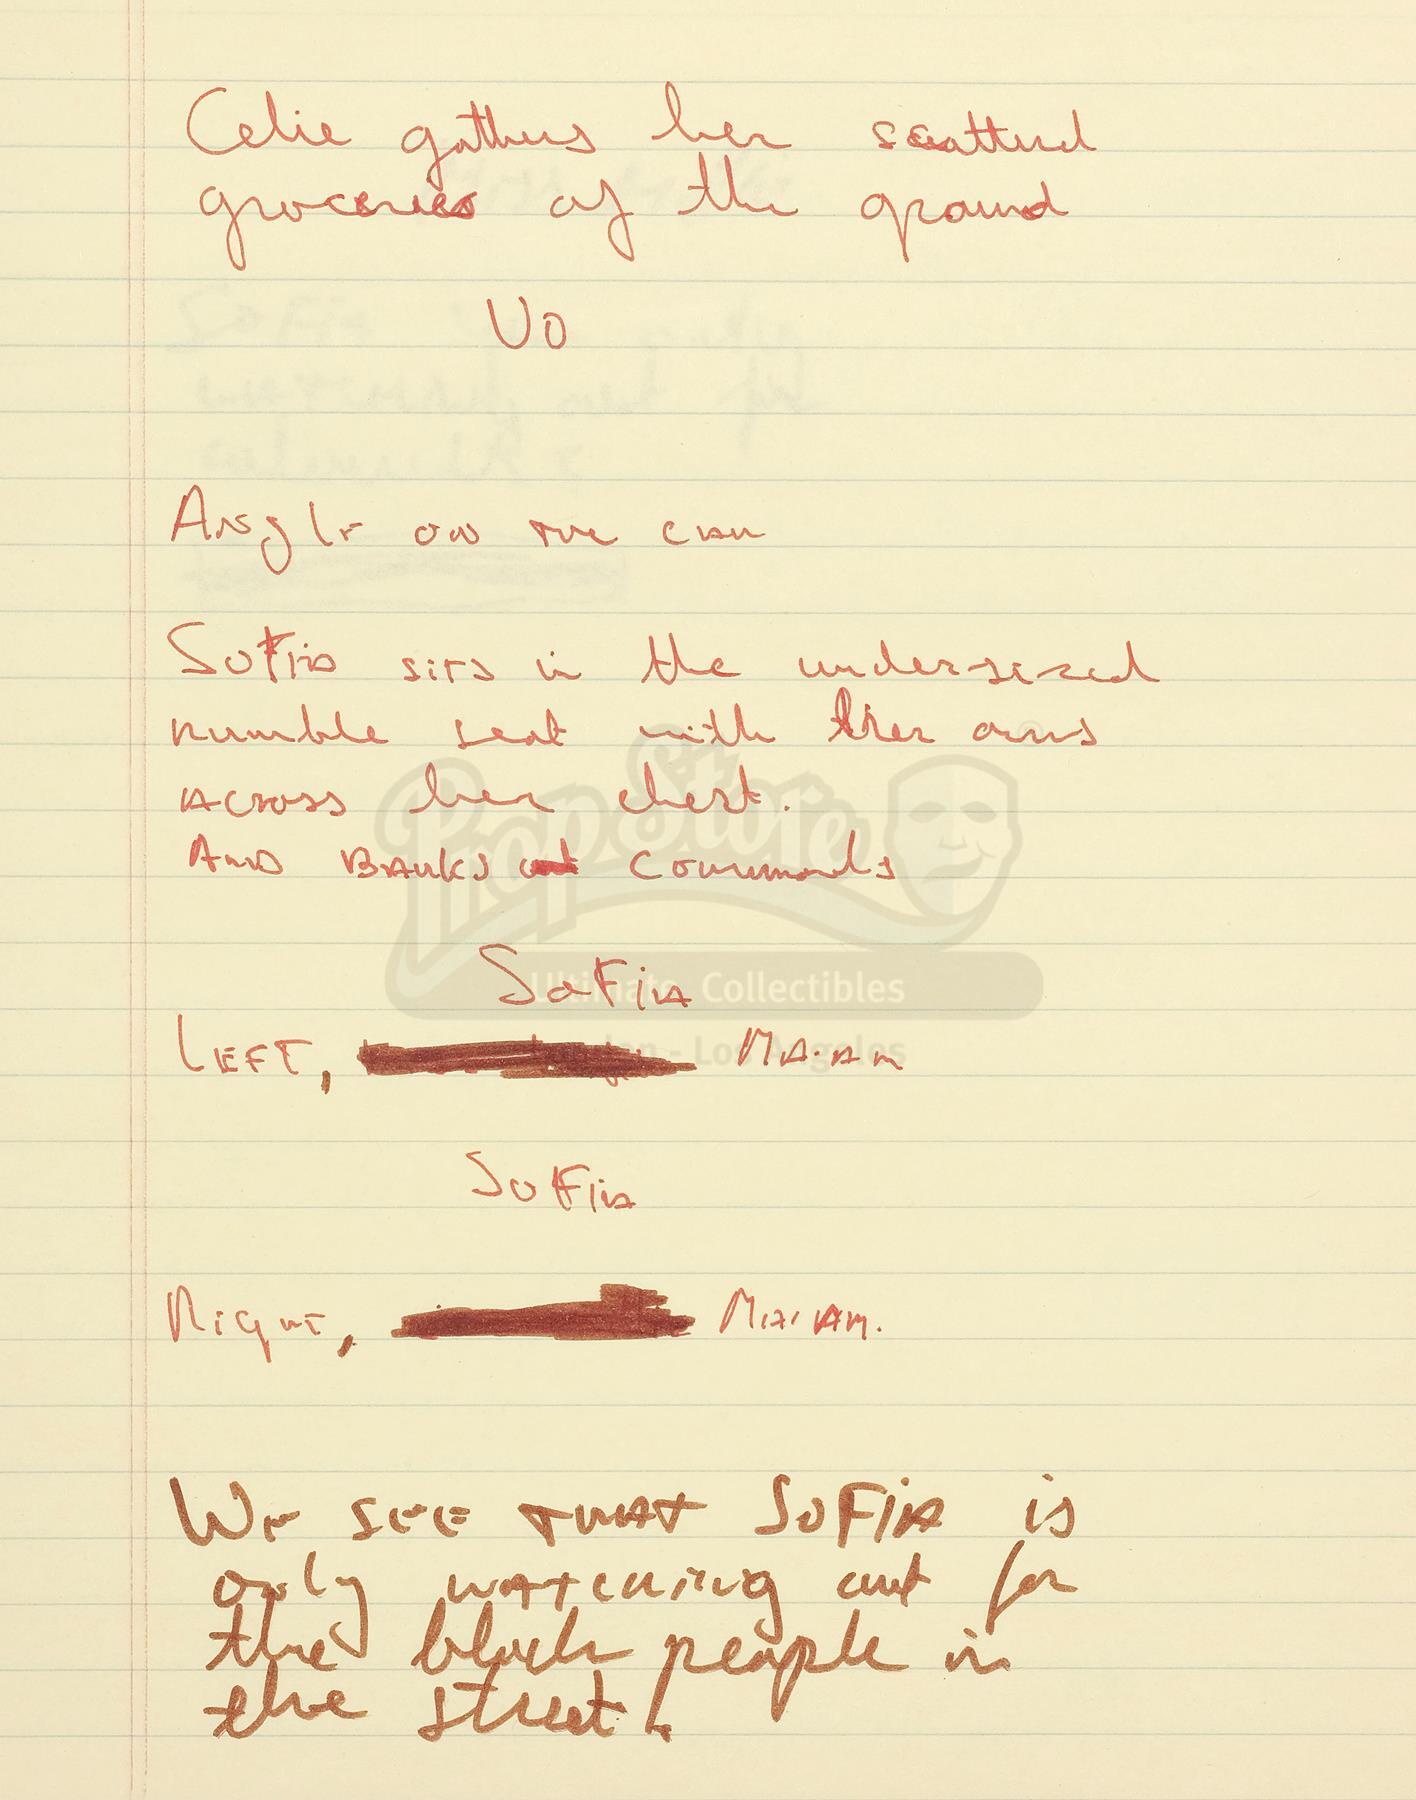 Celie gathers her scattered
groceries of the ground
VO
Angle on the car
Sofia sits in the undersized
rumble seat with her arms
across her chest.
And Barks out commands
Sofia
Left, Ma'am
Sofia
Right, Ma'am.
We see that Sofia is
only watching out for
the black people in
the street!
PropStore
Ultimate Collectibles
London - Los Angeles